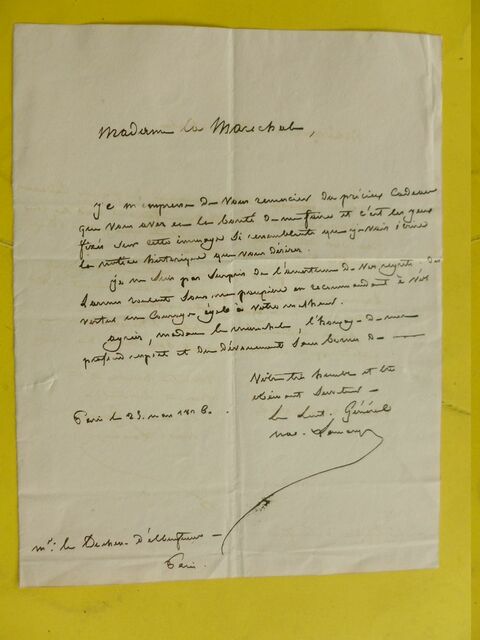 Madame la Maréchale,
je m'empresse de vous remercier du précieux Cadeau
que vous avez eu la bonté de me faire et c'est les yeux
fixés sur cette image si ressemblante que je vais écrire
la notice historique que vous désirez.
je ne suis pas surpris de l'amertume de vos regrets; des
larmes roulent sous ma paupière en recommandant à vos
vertus un Courage égal à votre malheur.
agréez, madame la maréchale, l'hommage de mon
profond respect et du dévouement sans bornes de
Votre très humble et très
obéissant Serviteur
le Lieut. Général
Paris le 25 mars 1826.
Mme: la Duchesse d'albufera
Paris.